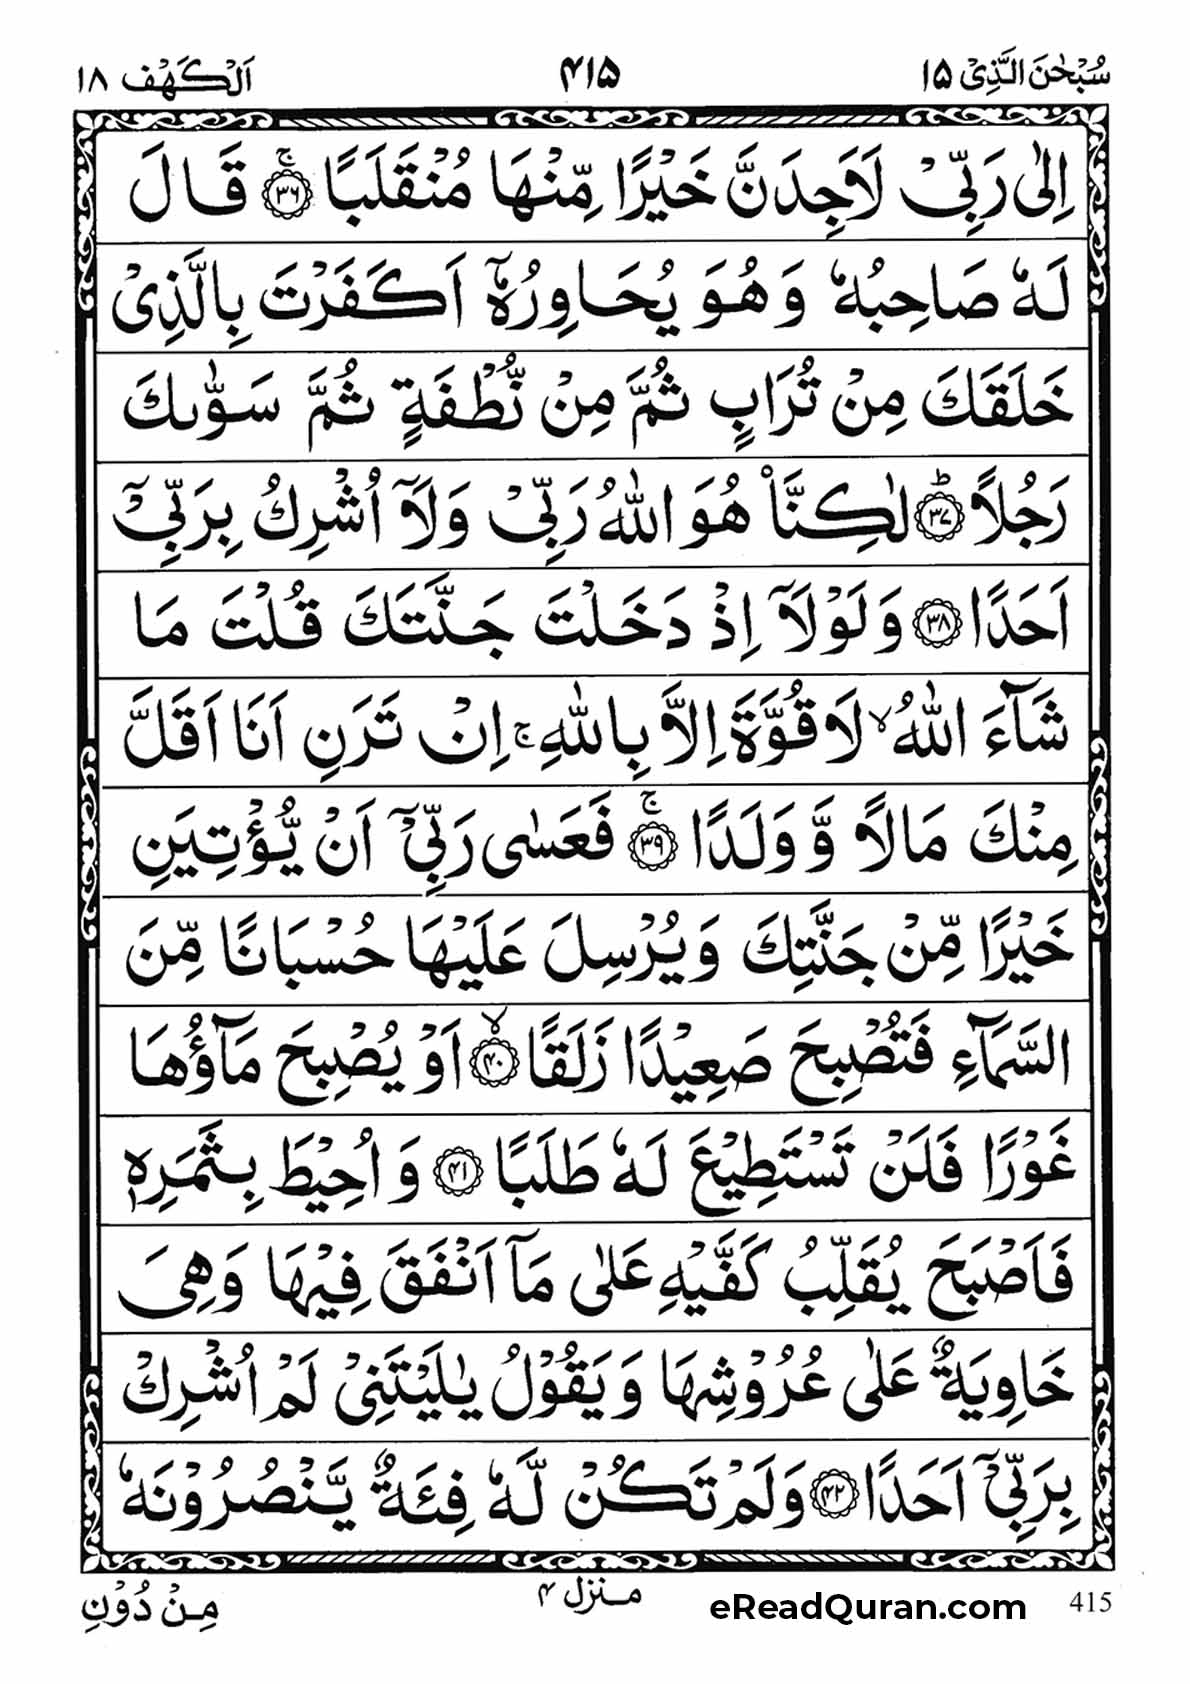 سُبْحٰنَ الَّذِیْ ۱۵ ۴۱۵ اَلْكَهْف ۱۸
اِلٰى رَبِّیْ لَاَجِدَنَّ خَیْرًا مِّنْهَا مُنْقَلَبًا ۚ‏﴿۳۶﴾ قَالَ
لَهٗ صَاحِبُهٗ وَ هُوَ یُحَاوِرُهٗۤ اَكَفَرْتَ بِالَّذِیْ
خَلَقَكَ مِنْ تُرَابٍ ثُمَّ مِنْ نُّطْفَةٍ ثُمَّ سَوّٰىكَ
رَجُلًا ؕ‏﴿۳۷﴾ لٰكِنَّا۠ هُوَ اللّٰهُ رَبِّیْ وَلَاۤ اُشْرِكُ بِرَبِّیْۤ
اَحَدًا ﴿۳۸﴾ وَ لَوْلَاۤ اِذْ دَخَلْتَ جَنَّتَكَ قُلْتَ مَا
شَآءَ اللّٰهُ ۙ لَا قُوَّةَ اِلَّا بِاللّٰهِ ۚ اِنْ تَرَنِ اَنَا اَقَلَّ
مِنْكَ مَالًا وَّ وَلَدًا ۚ‏﴿۳۹﴾ فَعَسٰى رَبِّیْۤ اَنْ یُّؤْتِیَنِ
خَیْرًا مِّنْ جَنَّتِكَ وَ یُرْسِلَ عَلَیْهَا حُسْبَانًا مِّنَ
السَّمَآءِ فَتُصْبِحَ صَعِیْدًا زَلَقًا ۙ‏﴿۴۰﴾ اَوْ یُصْبِحَ مَآؤُهَا
غَوْرًا فَلَنْ تَسْتَطِیْعَ لَهٗ طَلَبًا ﴿۴۱﴾ وَ اُحِیْطَ بِثَمَرِهٖ
فَاَصْبَحَ یُقَلِّبُ كَفَّیْهِ عَلٰى مَاۤ اَنْفَقَ فِیْهَا وَهِیَ
خَاوِیَةٌ عَلٰى عُرُوْشِهَا وَ یَقُوْلُ یٰلَیْتَنِیْ لَمْ اُشْرِكْ
بِرَبِّیْۤ اَحَدًا ﴿۴۲﴾ وَلَمْ تَكُنْ لَّهٗ فِئَةٌ یَّنْصُرُوْنَهٗ
مِنْ دُوْنِ منزل ۴ eReadQuran.com 415